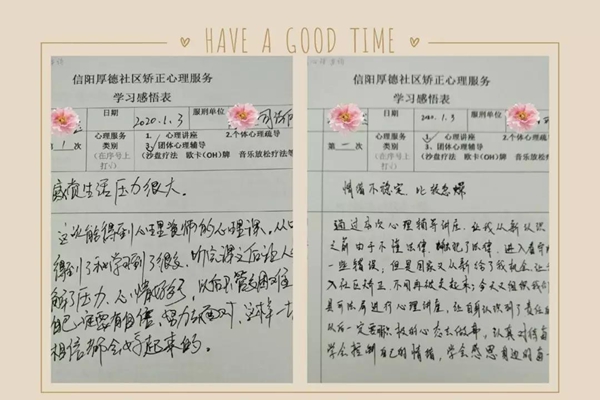 HAVE A GOOD TIME
信阳厚德社区矫正心理服务
学习感悟表
日期 2020.1.3 服刑单位
第1次 心理服务类别 (在序号上打√) 1. 心理讲座 2.个体心理疏导
3. 团体心理辅导
(沙盘疗法 欧卡(OH)牌 音乐放松疗法等
感觉生活压力很大。
这次能得到心理老师的心理课。从
得到了和学到了很多。听完课之后让人心
解了压力、心情好多了,以后不管
自己一定要有自信、努力去面对,这样一切
相信都会好起来的。
信阳厚德社区矫正心理服务
学习感悟表
日期 服刑单位
第一次 心理服务类别 (在序号上打√) 1. 心理讲座 2.个体心理疏导
3. 团体心理辅导
(沙盘疗法 欧卡(OH)牌 音乐放松疗法
情绪不稳定,比较急躁
通过本次心理辅导讲座,让我从新认识
之前由于不懂法律,触犯了法律,进入看守
一些错误,但是国家又从新给了我机会,让
入社区矫正,不用再被关起来,今天又组织我们
县司法局进行心理讲座,让自己认识到了责任
以后一定要积极的心态去做事,认真对待每
学会控制自己的情绪,学会感恩身边的每一